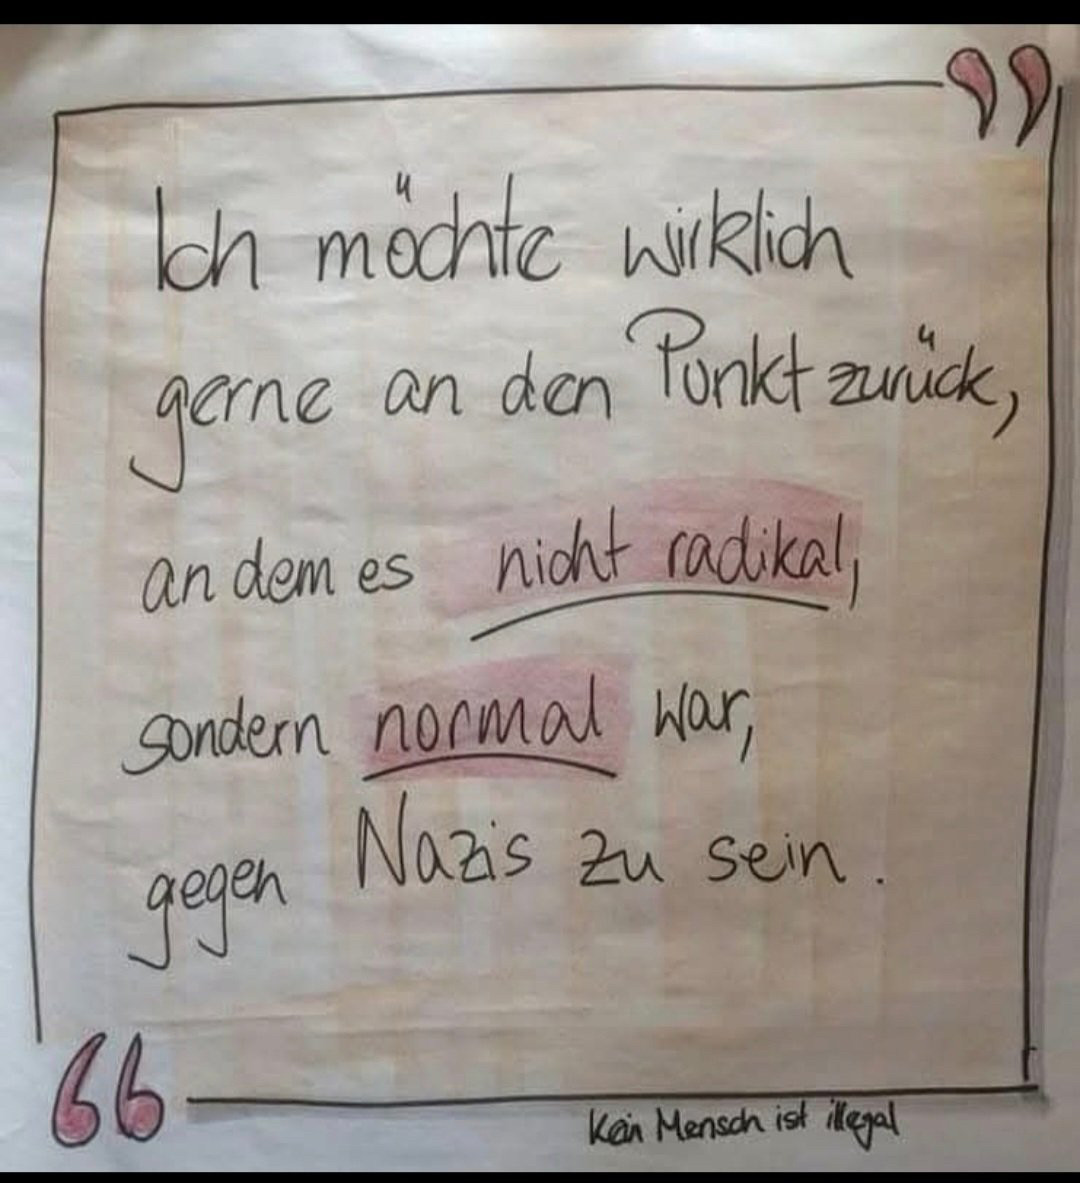 Ich möchte wirklich
gerne an den Punkt zurück,
an dem es nicht radikal,
sondern normal war,
gegen Nazis zu sein.
Kein Mensch ist illegal